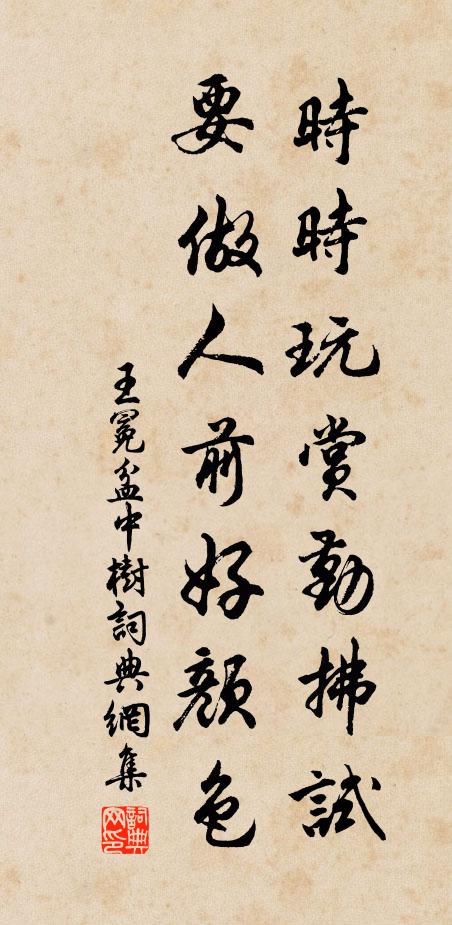 時時玩賞勤拂試
要做人前好顏色
王冕盆中樹詞典網集
詞典网印